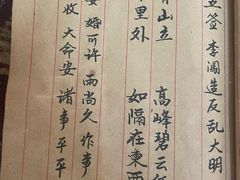 五签 李闯造反乱大明
青山立 高峰碧云
里外 如隔在東西
安 婚可许 雨尚久 诈事
收 大命安 诸事平平